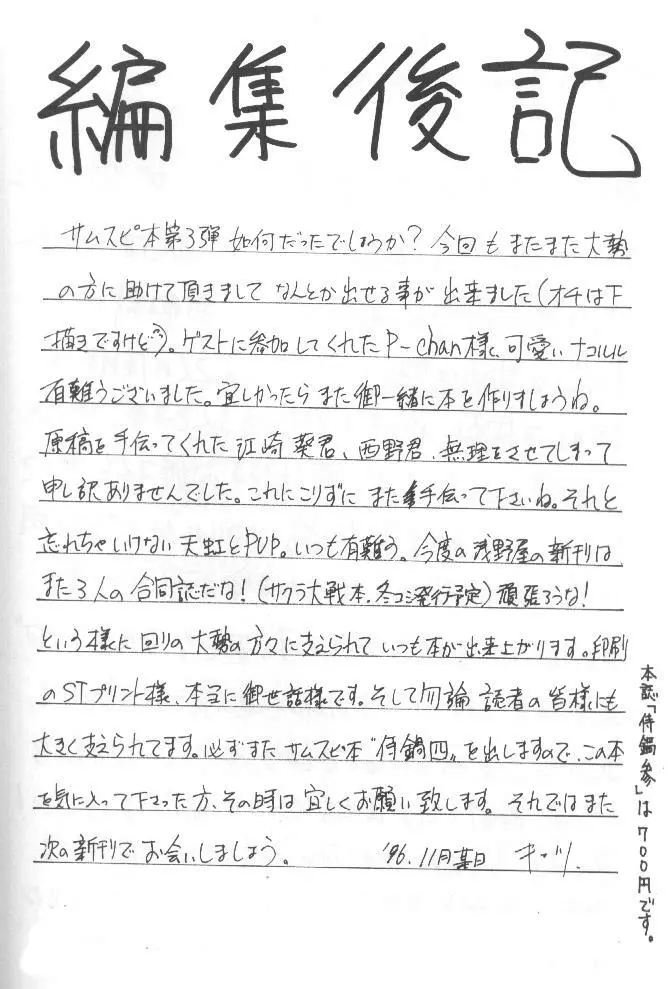 編集後記
サムスピ本第3弾 如何だったでしょうか？今回もまたまた大勢
の方に助けて頂きまして なんとか出せる事が出来ました(オチは下
描きですけど)。ゲストに参加してくれたP-chan様、可愛いナコルル
有難うございました。宜しかったらまた御一緒に本を作りましょうね。
原稿を手伝ってくれた江崎葵君、西野君、無理をさせてしまって
申し訳ありませんでした。これにこりずにまた手伝って下さいね。それと
忘れちゃいけない天虹とPUP。いつも有難う。今度の浅野屋の新刊は
また3人の合同誌だな！(サクラ大戦本、冬コミ発行予定)頑張ろうな！
という様に回りの大勢の方々に支えられていつも本が出来上がります。印刷
のSTプリント様、本当に御世話様です。そして勿論読者の皆様にも
大きく支えられてます。必ずまたサムスピ本“侍鍋四„を出しますので、この本
を気に入って下さった方、その時は宜しくお願い致します。それではまた
次の新刊でお会いしましょう。 '96.11月某日 キッツ.
本誌「侍鍋参」は700円です。